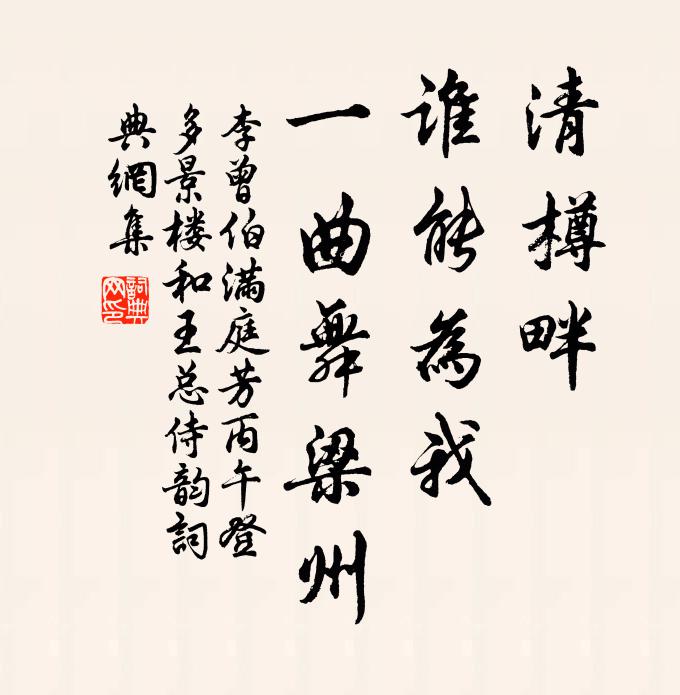 清樽畔
谁能為我
一曲舞梁州
李曾伯满庭芳丙午登
多景楼和王总侍韵詞
典網集
詞典网印